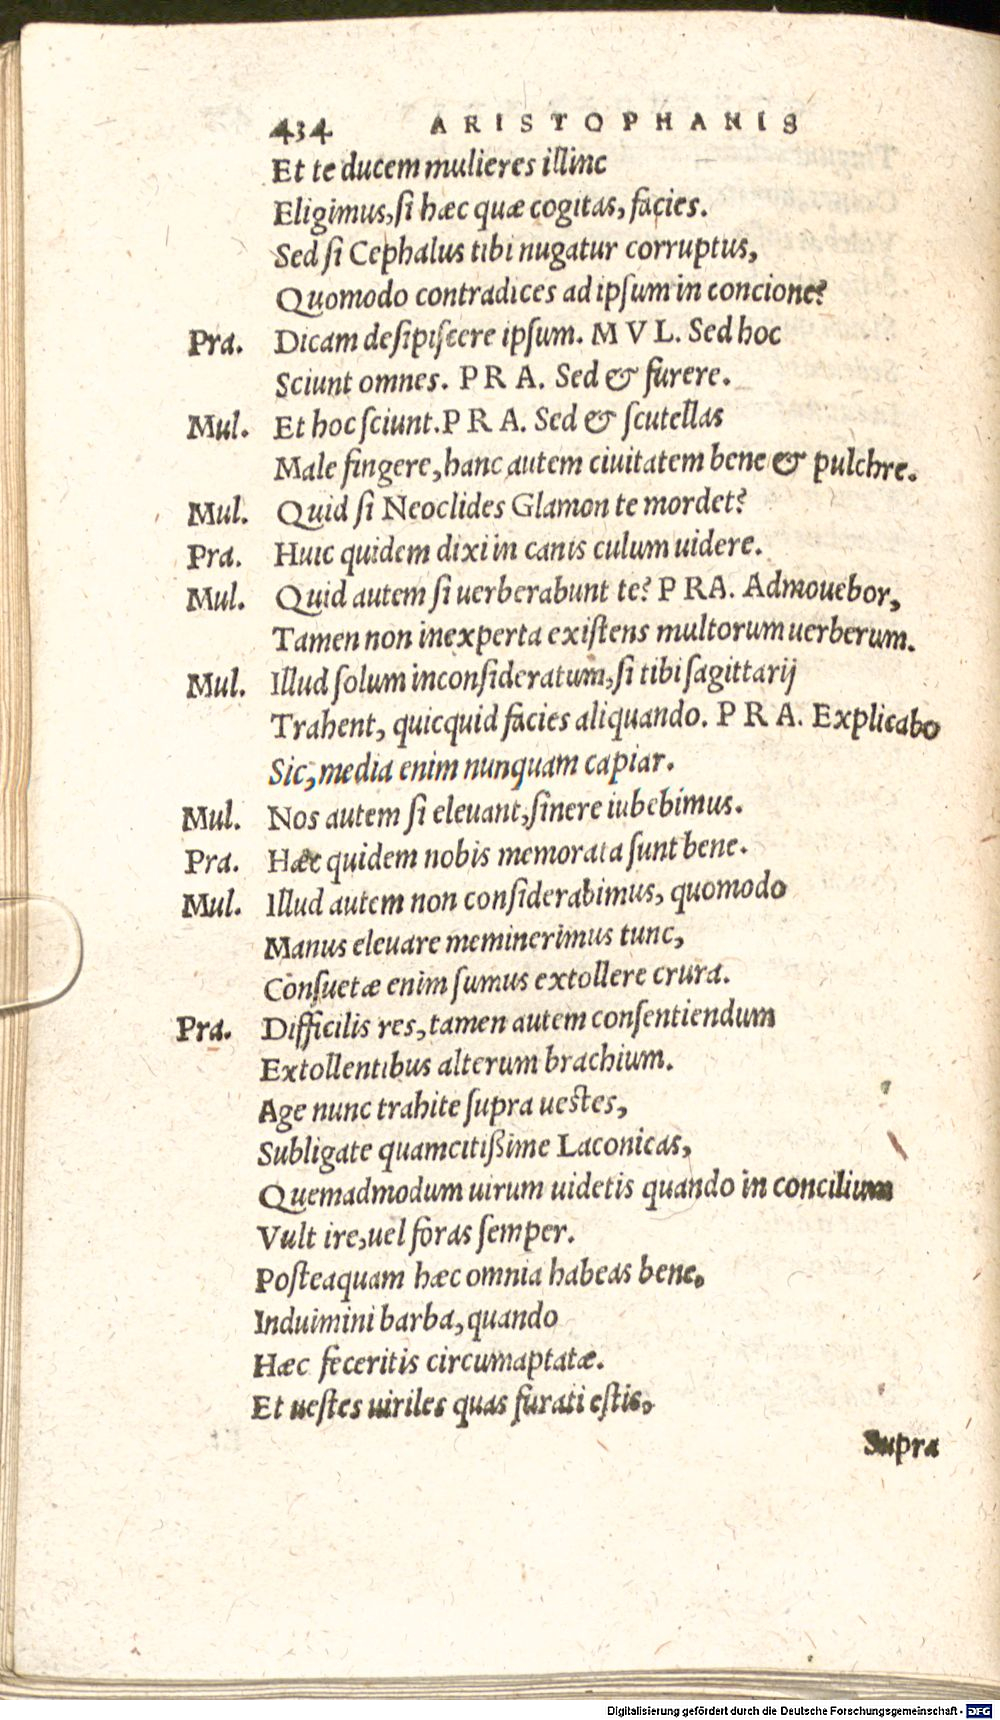 434 ARISTOPHANIS
Et te ducem mulieres illinc
Eligimus, ſi hæc quæ cogitas, facies.
Sed ſi Cephalus tibi nugatur corruptus,
Quomodo contradices ad ipſum in concione?
Pra. Dicam deſipiſcere ipſum. M V L. Sed hoc
Sciunt omnes. P R A. Sed & furere.
Mul. Et hoc ſciunt. P R A. Sed & ſcutellas
Male fingere, hanc autem ciuitatem bene & pulchre.
Mul. Quid ſi Neoclides Glamon te mordet?
Pra. Huic quidem dixi in canis culum uidere.
Mul. Quid autem ſi uerberabunt te? P RA. Admouebor,
Tamen non inexperta exiſtens multorum uerberum.
Mul. Illud ſolum inconſideratum, ſi tibi ſagittarij
Trahent, quicquid facies aliquando. P R A. Explicabo
Sic, media enim nunquam capiar.
Mul. Nos autem ſi eleuant, ſinere iubebimus.
Pra. Hæc quidem nobis memorata ſunt bene.
Mul. Illud autem non conſiderabimus, quomodo
Manus eleuare meminerimus tunc,
Conſuetæ enim ſumus extollere crura.
Pra. Difficilis res, tamen autem conſentiendum
Extollentibus alterum brachium.
Age nunc trahite ſupra ueſtes,
Subligate quamcitißime Laconicas,
Quemadmodum uirum uidetis quando in concilium
Vult ire, uel foras ſemper.
Poſteaquam hæc omnia habeas bene.
Induimini barba, quando
Hæc feceritis circumaptatæ.
Et ueſtes uiriles quas furati eſtis,
Supra
Digitalisierung gefördert durch die Deutsche Forschungsgemeinschaft - DFG